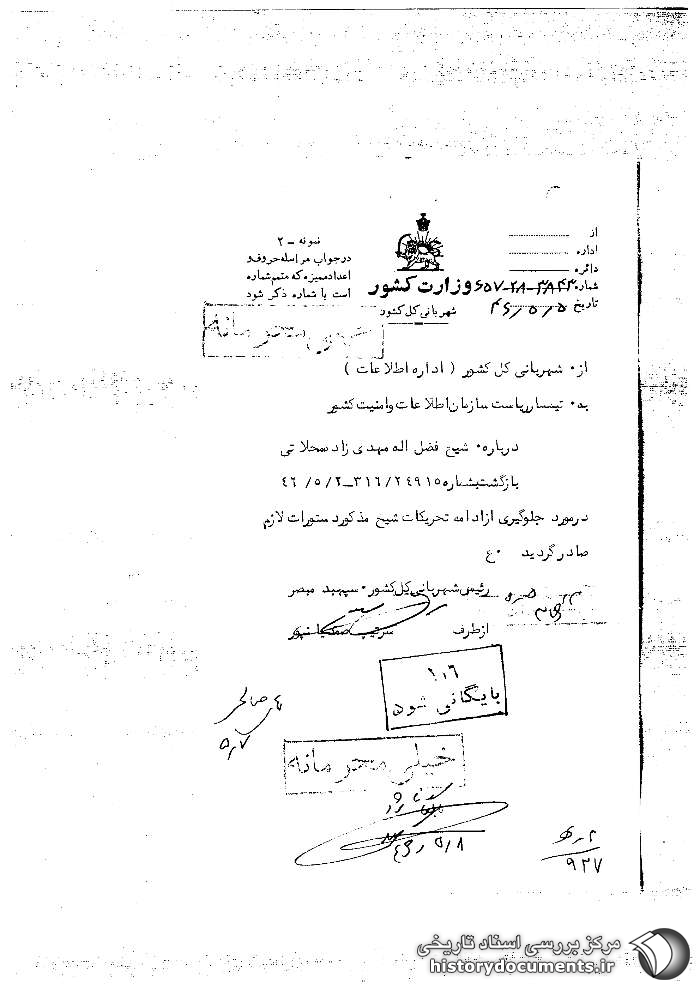 نمونه - ۲
در جواب مراسله حروف و
اعداد ممیزه که متمم شماره
است با شماره ذکر شود
وزارت کشور
شهربانی کل کشور
از
اداره
دائره
شماره
تاریخ ۴۶/۵/۵
خیلی محرمانه
از: شهربانی کل کشور ( اداره اطلاعات )
به: تیمسار ریاست سازمان اطلاعات و امنیت کشور
درباره: شیخ فضل اله مهدی زاد محلاتی
بازگشت بشماره ۳۱۶/۲۴۹۱۵ــ۴۶/۵/۲
در مورد جلوگیری از ادامه تحریکات شیخ مذکور دستورات لازم
صادر گردید . ع
رئیس شهربانی کل کشور . سپهبد مبصر
از طرف سرتیپ صمدیانپور
۱۰۶
بایگانی شود
صالحی
۵/۷
خیلی محرمانه
۵/۸
۹۲۷
مرکز بررسی اسناد تاریخی
historydocuments.ir